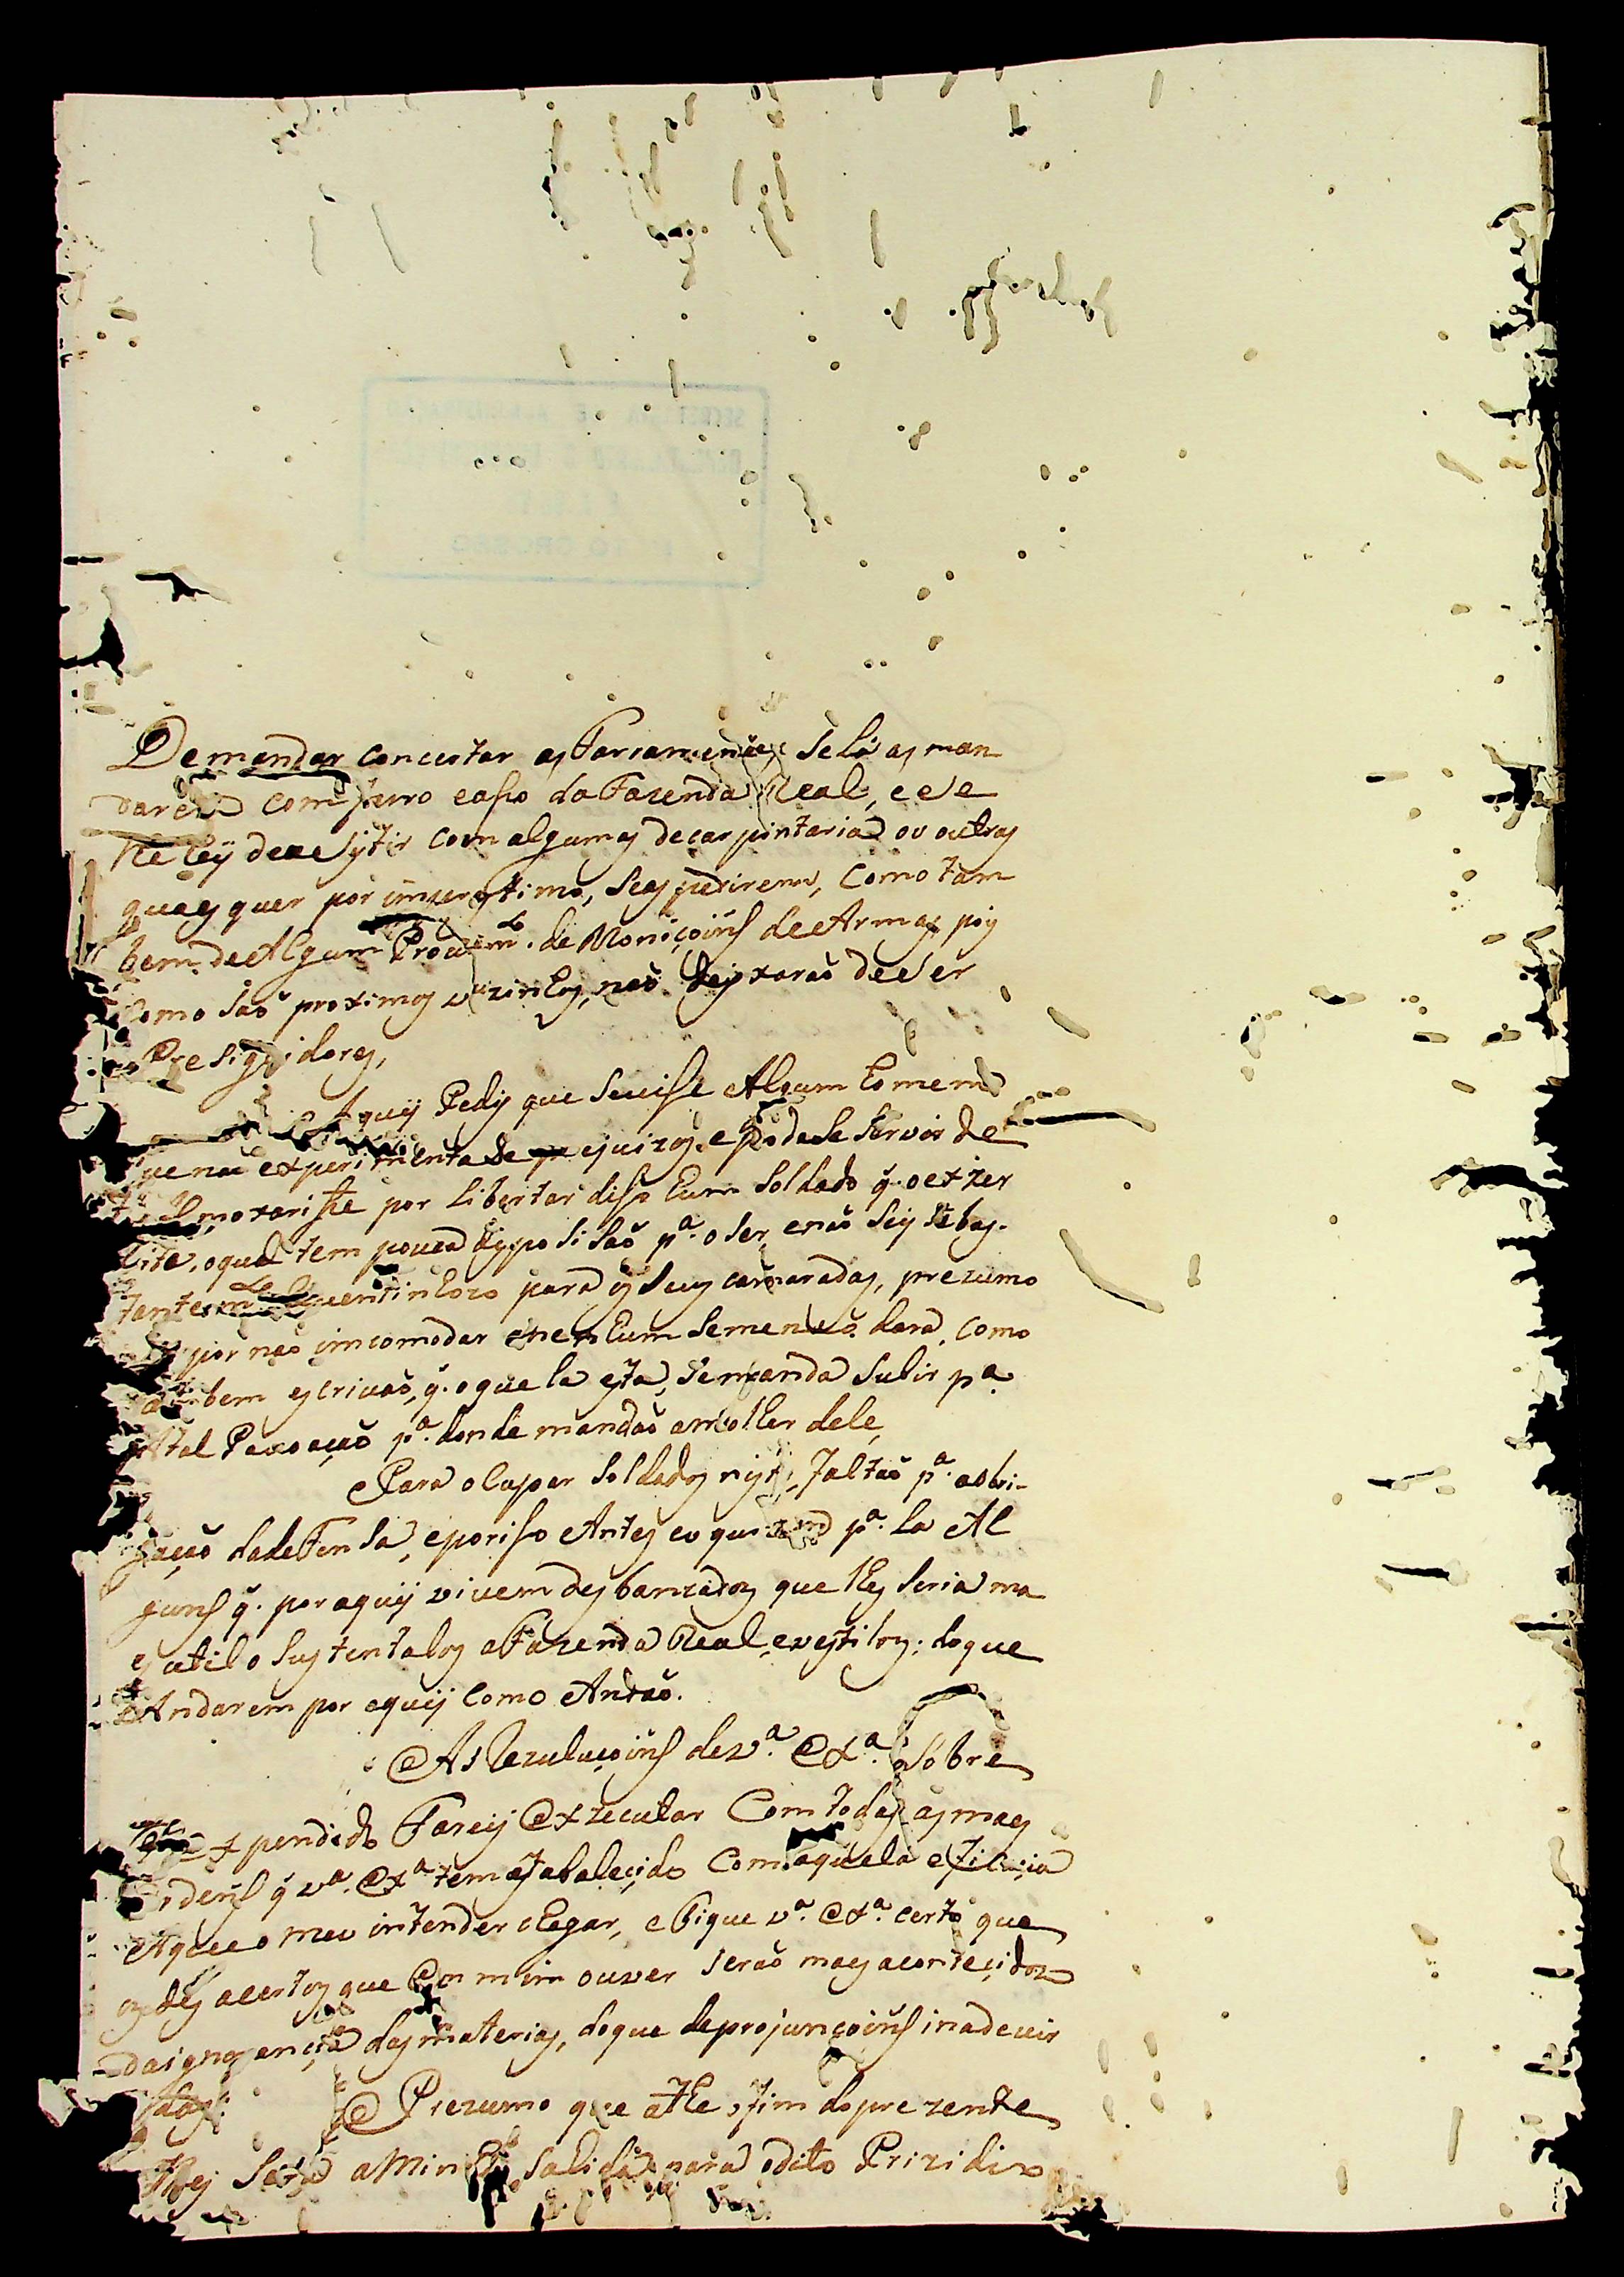 De mandar concertar as Farramentas, Se lá as man
darem com ferro e aso da Fazenda Real, e Se
lhe ey de aSystir com algumas de carpintaria ou outras
quaes quer por imprestimo, Se as pedirem, como tam
bem de Algum Provim.to de Moniçoins de Armas pois
como Saõ proximos vezinhos, naõ deyxaraõ de Ser
PreSiguidores,
Aquy Pedy que Se visse Algum homem
que naõ experimentaSe prejuizos, e podeSe Servir de
Almoxarife por libertar disso hum Soldado q̃. o exzer
Site, o qual tem pouca dispoSiSaõ p.a o Ser, e naõ Sey Se bas-
tantem.te para os Seus camaradas, prezumo
por naõ imcomodar a nenhum Se me naõ dará, como
tambem escrivaõ, q̃. o que la está, Se manda Subir p.a
A tal Povoaçaõ p.a donde mandaõ a molher dele,
Para o lupar Soldados nisto, faltaõ p.a a obri-
gaçaõ da deFenSa, e por isso Antes eu queria p.a la Al
guns q̃. por aquy vivem desbanzados que lhes Seria ma
es util o Sustentalos a Fazenda Real, e vestilos; do que
Andarem por aquy como Andaõ.
As Rezuluçoins de V.a Ex.a Sobre
o expendido Farey Exzecutar Com todas as mays
ordens q̃ V.a Ex.a tem estabaleçido Com aquela eficaçia
A que o meu intender chegar, e Fique V.a Ex.a certo que
os desacertos que em mim ouver Seraõ mays aconteçidos
da ignorançia das materias, do que de projunçoins inadevir
das.
Prezumo que athe o fim do prezente
Mes Será a Minha Sahida para o dito Prizidio